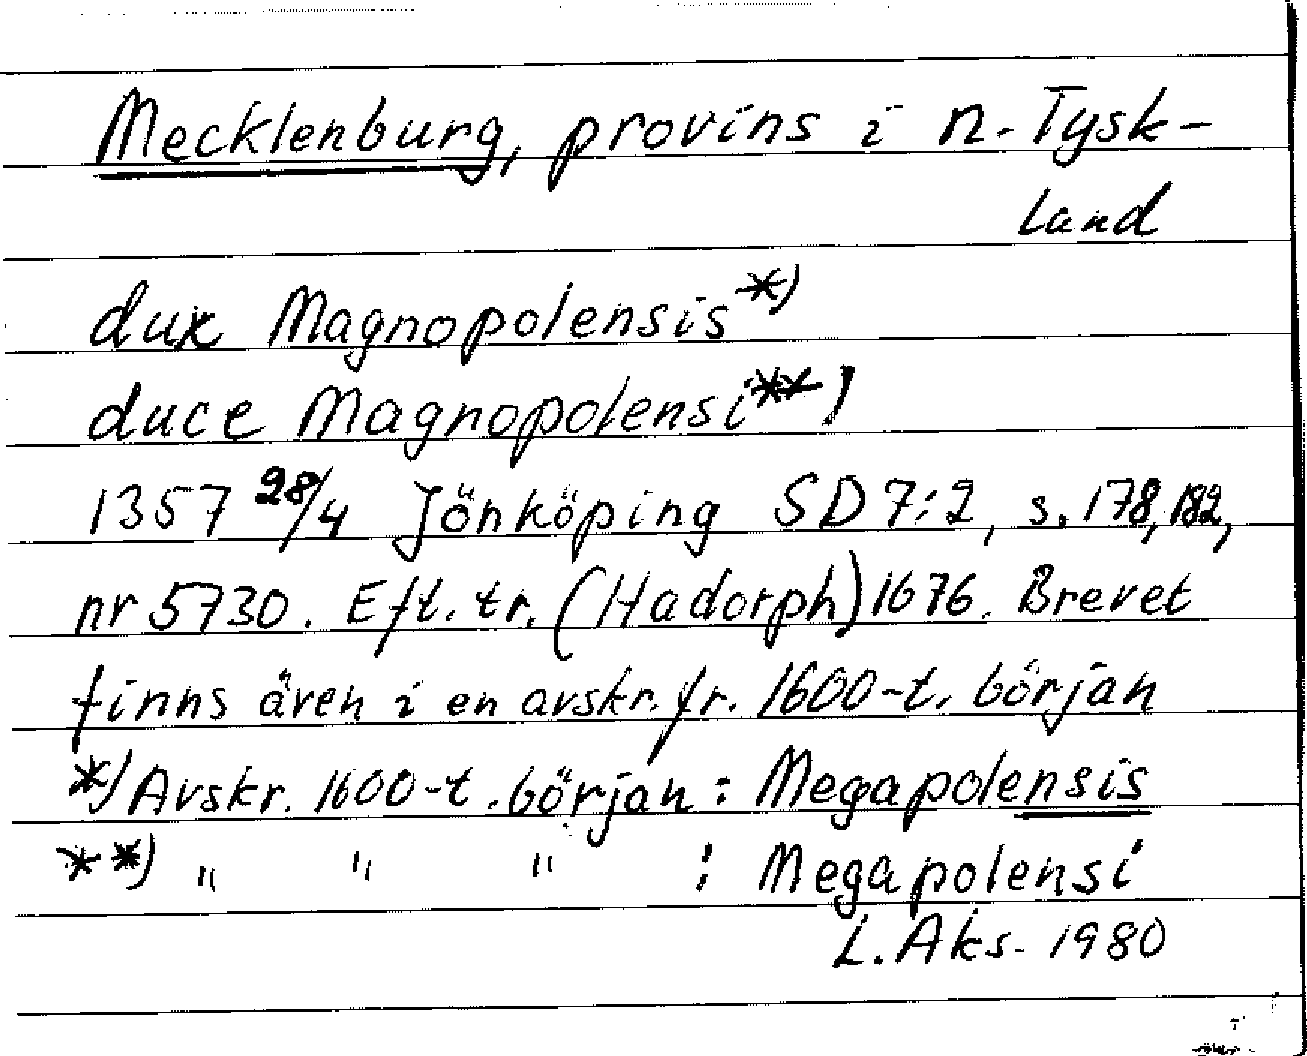 Mecklenburg, provins i n. Tysk-
land
dux Magnopolensis*)
duce Magnopolensi**)
1357 28/4 Jönköping SD 7:2, s. 178, 182,
nr 5730. Eft. tr. (Hadorph) 1676. Brevet
finns även i en avskr. fr. 1600-t. början
*) Avskr. 1600-t. början: Megapolensis
**) " " " : Megapolensi
L. Aks. 1980